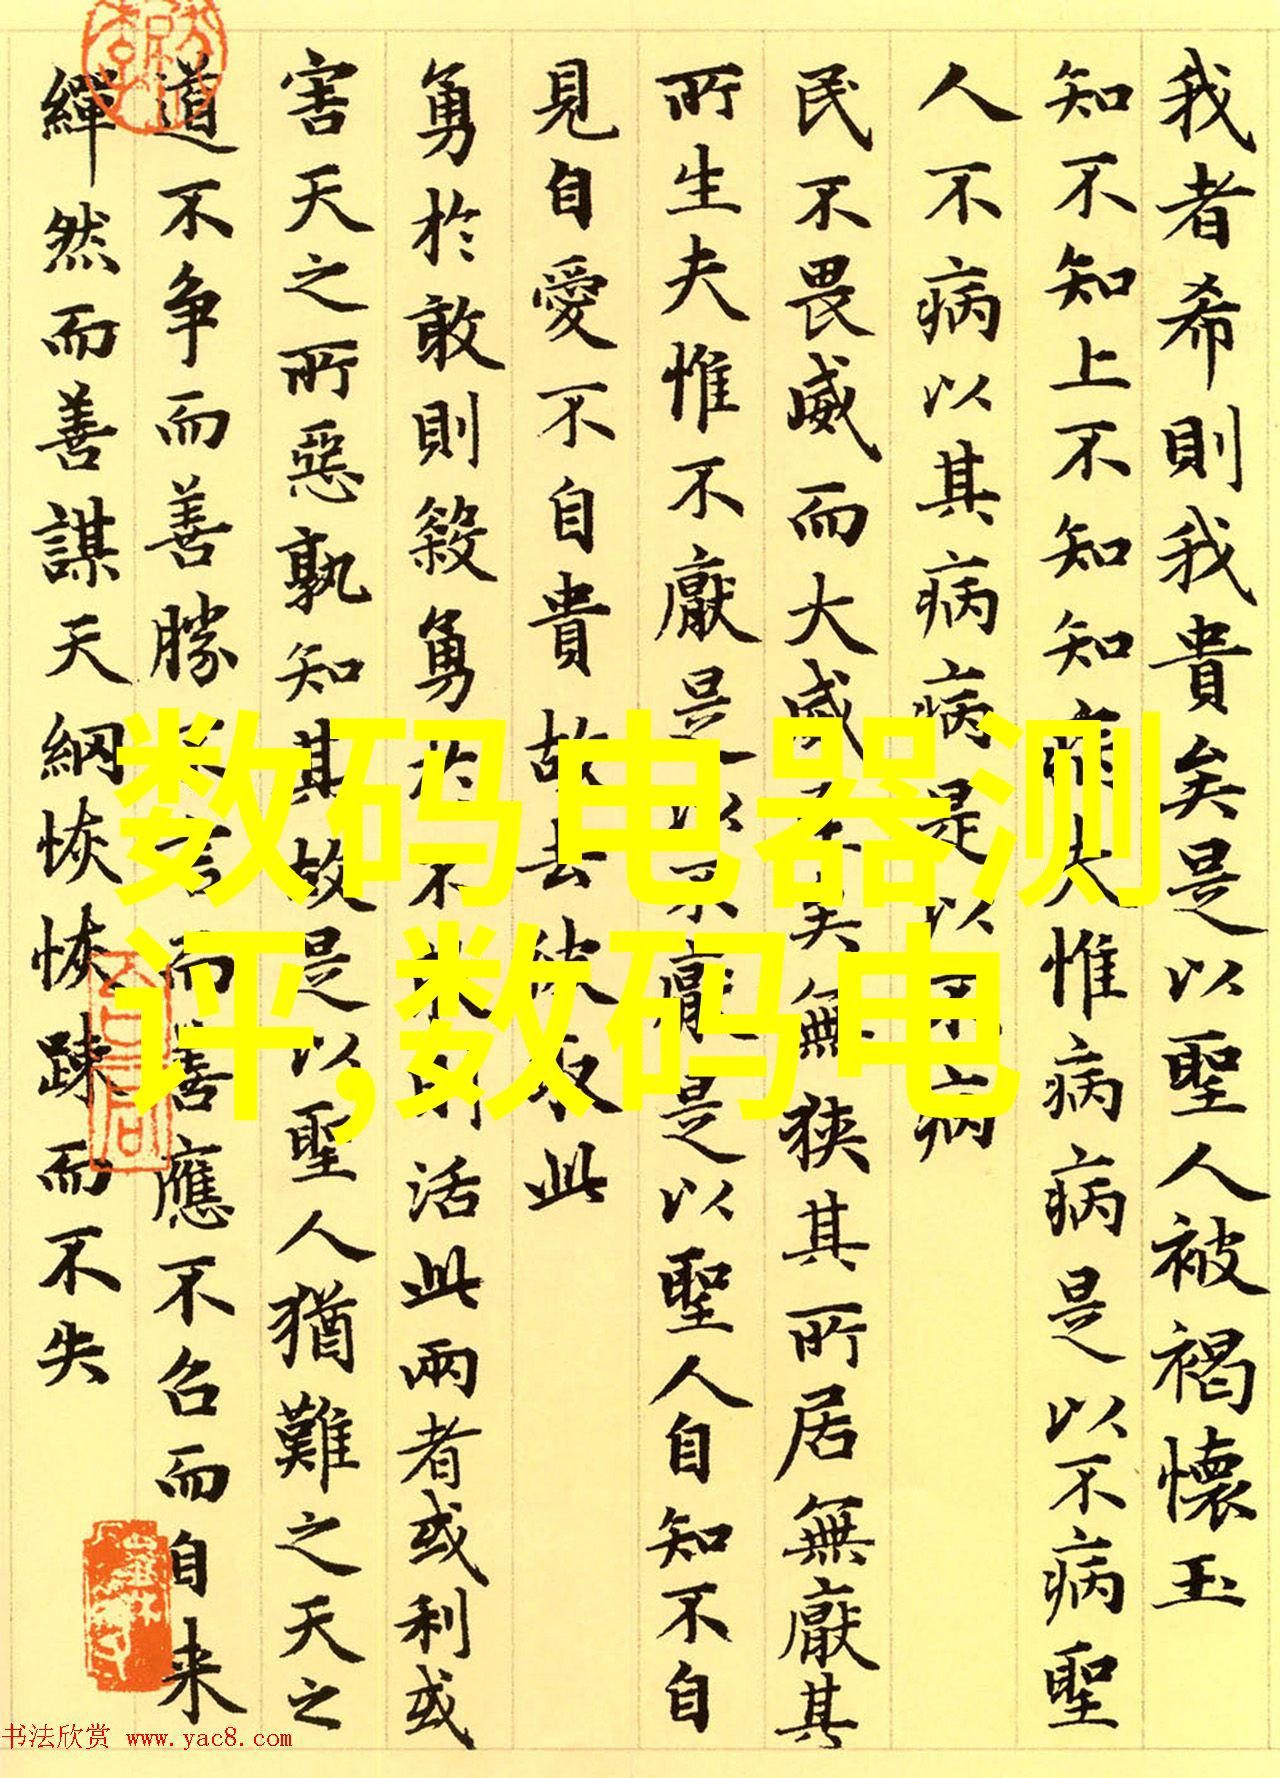 我者希則我貴矣是以聖人被褐懷玉
知不知上不知知病夫惟病病是以不病聖
人不病以其病病是以不病
民不畏威而大威至矣無狹其所居無厭其
所生夫惟不厭是以不厭是以聖人自知不自
見自愛不自貴故去彼取此
勇於敢則殺勇於不敢則活此兩者或利或
害天之所惡孰知其故是以聖人猶難之天之
道不争而善勝不言而善應不召而自来
繟然而善謀天網恢恢踈而不失
数码电器测
评,数码电
书法欣赏 www.yac8.com